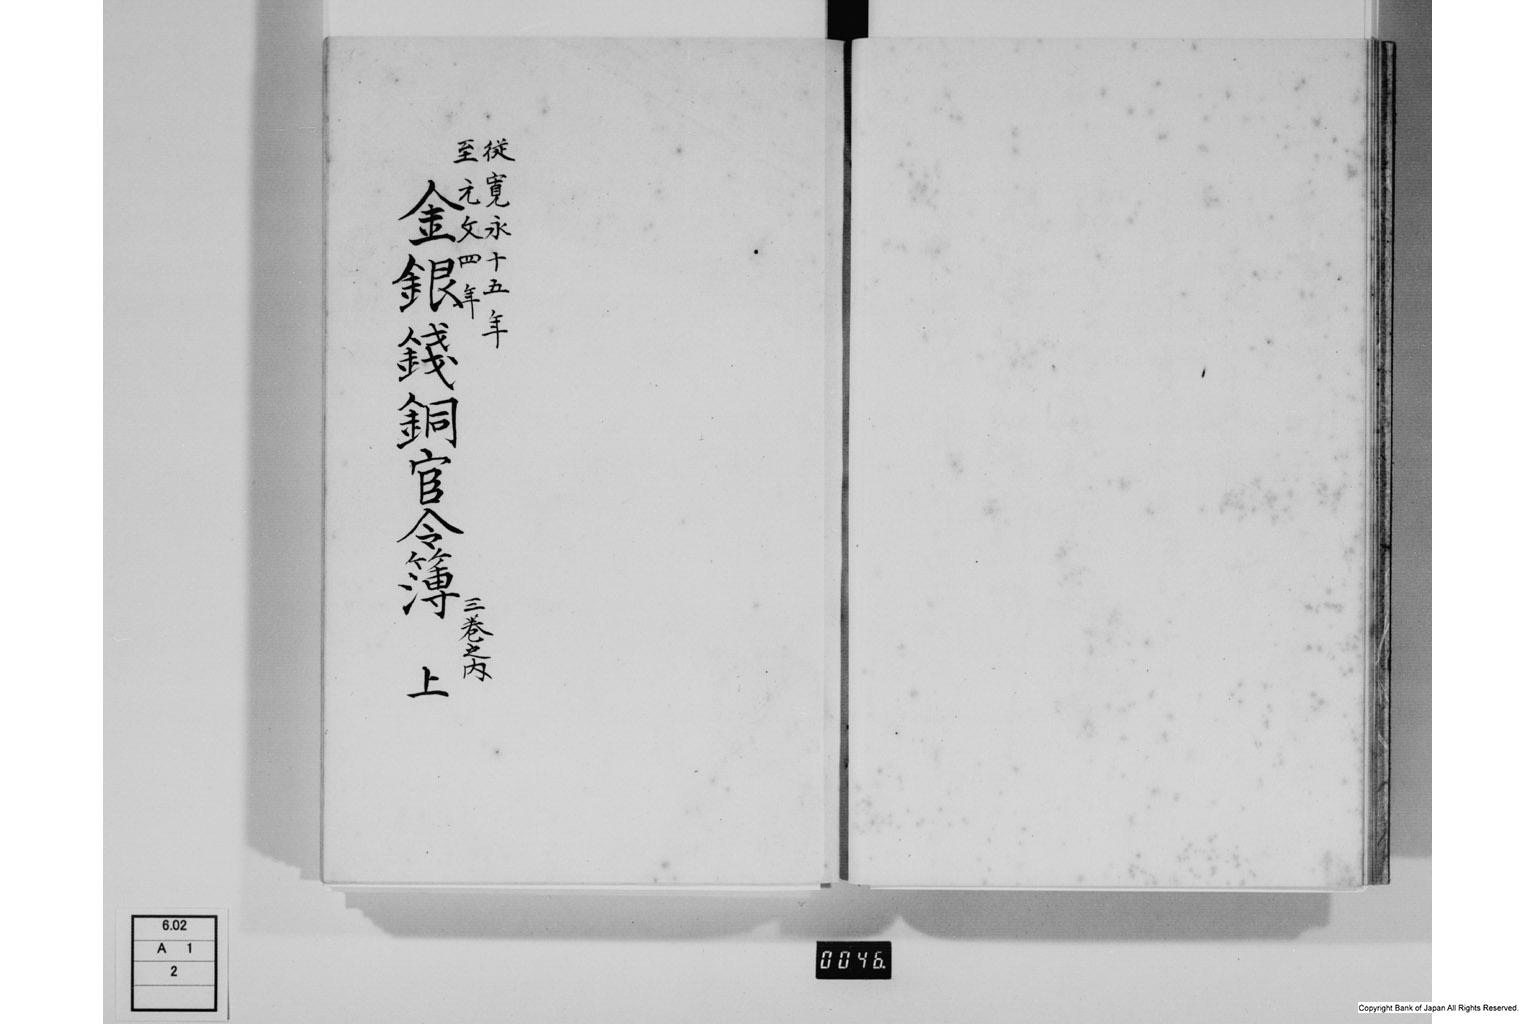 従寛永十五年
至元文四年
金銀錢銅官令簿 三巻之内 上
6.02
A 1
2
0046.
Copyright Bank of Japan All Rights Reserved.